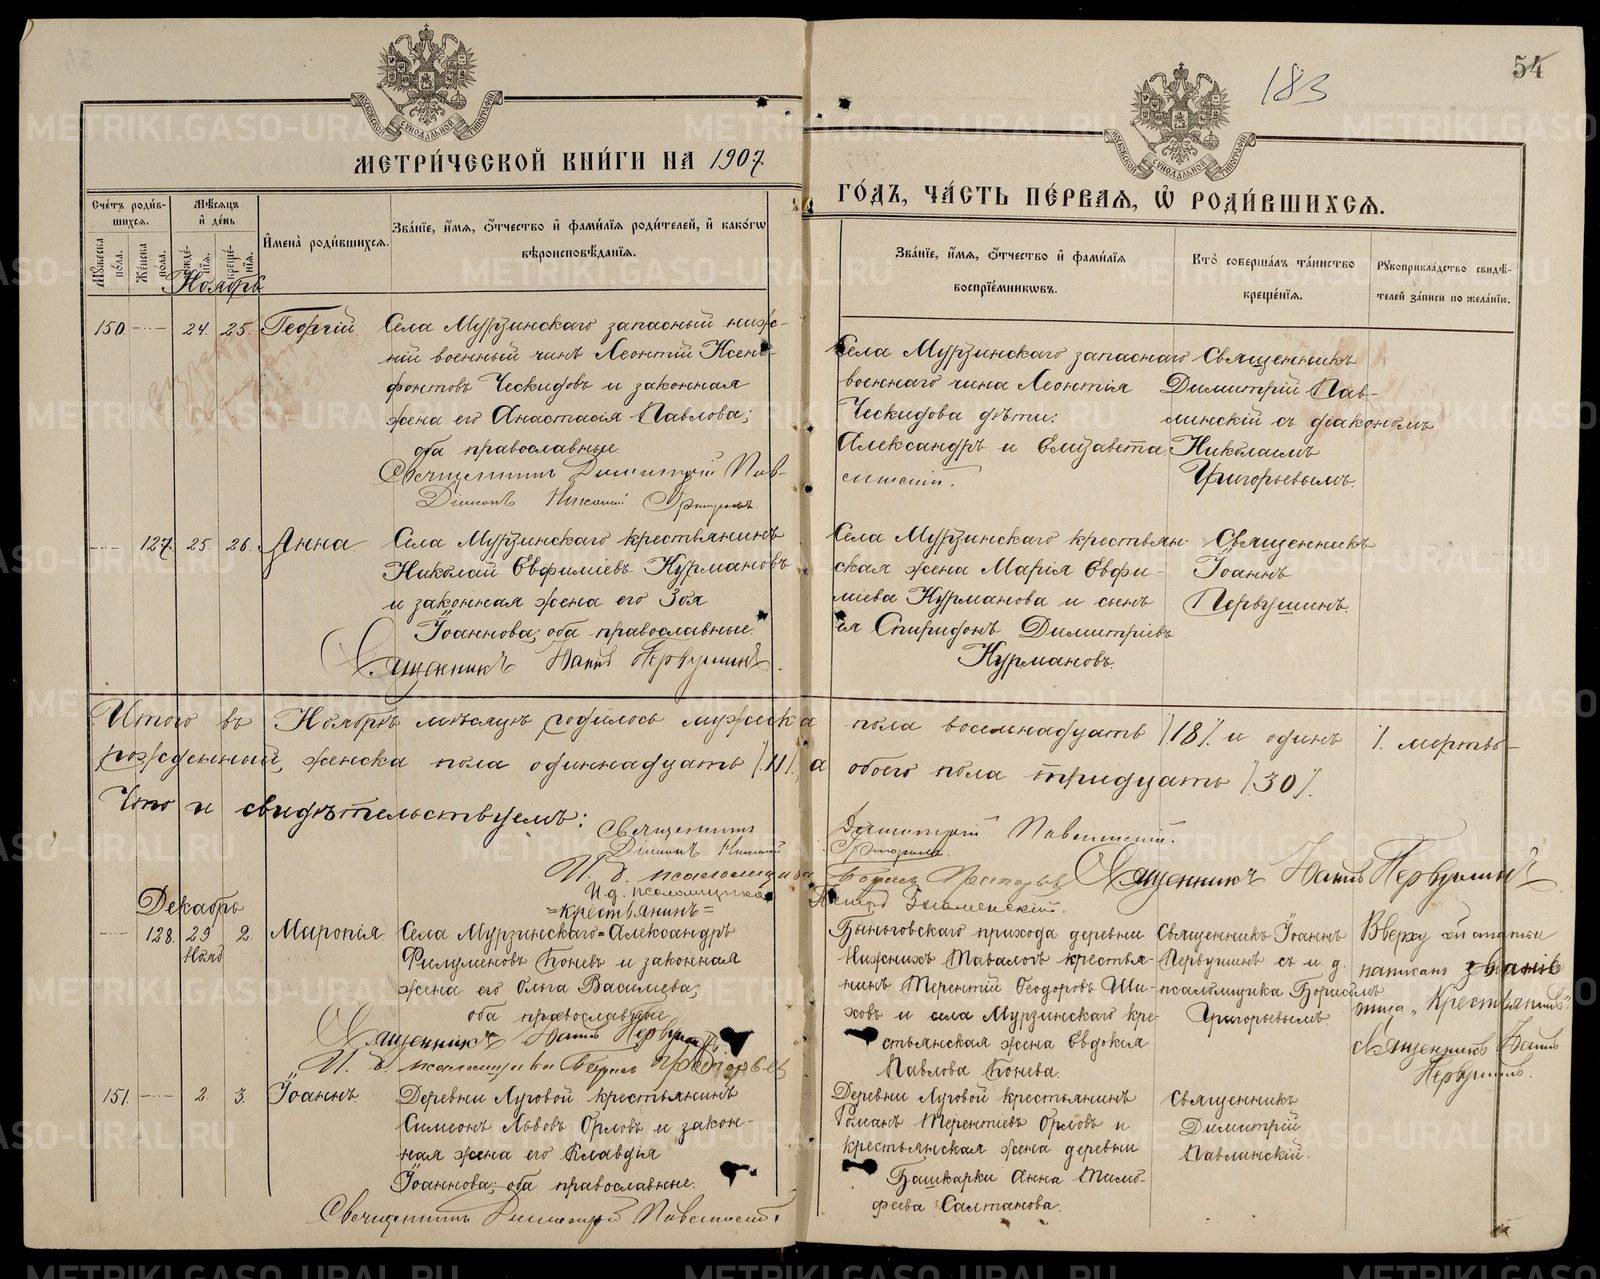 54
183
МОСКОВСКОЙ СѴНОДАЛЬНОЙ ТИПОГРАФІИ
МОСКОВСКОЙ СѴНОДАЛЬНОЙ ТИПОГРАФІИ
МЕТРИ́ЧЕСКОЙ КНИ́ГИ НА 1907
ГО́ДЪ, ЧА́СТЬ ПЕ́РВАѦ, Ѡ҆ РОДИ́ВШИХСѦ.
Сче́тъ роди́в-
шихсѧ.
Мѣ́сѧцъ
и҆ де́нь
Мꙋ́жеска по́ла.
Же́нска по́ла.
рожде́нїѧ.
креще́нїѧ.
И҆мена̀ роди́вшихсѧ.
Зва́нїе, и҆́мѧ, ѻ҆́тчество и҆ фами́лїѧ роди́телей, и҆ како́гѡ
вѣроисповѣ́данїѧ.
Зва́нїе, и҆́мѧ, ѻ҆́тчество и҆ фами́лїѧ
воспрїе́мникѡвъ.
Кто̀ соверша́лъ та́инство
креще́нїѧ.
Рꙋкоприкла́дство свидѣ́-
телей за́писи по жела́нїю.
Ноябрь
150 — 24. 25. Георгій
Села Мурзинскаго запасный ниж-
ній военный чинъ Леонтій Ксено-
фонтовъ Ческидовъ и законная
жена его Анастасія Павлова;
оба православные.
Священникъ Димитрій Пав-
Діаконъ Николай Григорьев
Села Мурзинскаго запаснаго
военнаго чина Леонтія
Ческидова дѣти:
Александръ и Елизавета
Священникъ
Димитрій Пав-
линскій съ діакономъ
Николаемъ
Григорьевымъ.
— 127. 25. 26. Анна
Села Мурзинскаго крестьянинъ
Николай Евфиміевъ Курмановъ
и законная жена его Зоя
Іоаннова; оба православные.
Священникъ Іоаннъ Первушинъ.
Села Мурзинскаго крестьян-
ская жена Марія Евфи-
міева Курманова и сынъ
ея Спиридонъ Димитріевъ
Курмановъ.
Священникъ
Іоаннъ
Первушинъ.
Итого въ Ноябрѣ мѣсяцѣ родилось мужска пола восемнадцать /18/. и одинъ /. мертво-
рожденный, женска пола одиннадцать /.11/., а обоего пола тридцать /.30/.
Что и свидѣтельствуемъ:
Священникъ Димитрій Павлинскій.
Діаконъ Николай Григорьев
И. д. псаломщика Борисъ Григорьевъ Священникъ Іоаннъ Первушинъ.
И.д. псаломщика Знаменскій.
Декабрь
=крестьянинъ=
— 128. 29 2. Миропія
Нояб
Села Мурзинскаго=Александръ
Филумановъ Коневъ и законная
жена его Ольга Васильева;
оба православные
Священникъ Іоаннъ Первушинъ
И. д. псаломщика Борисъ Григорьевъ
Быньговскаго прихода деревни
Нижнихъ Таваловъ крестья-
нинъ Терентій Ѳеодоровъ Ши-
ховъ и села Мурзинскаго кре-
стьянская жена Евдокія
Павлова Конева.
Священникъ Іоаннъ
Первушинъ съ и д.
псаломщика Борисомъ
Григорьевымъ
Вверху сей статьи
написано званіе
отца „Крестьянинъ".
Священникъ Іоаннъ
Первушинъ.
151. — 2. 3. Іоаннъ.
Деревни Луговой крестьянинъ
Симеонъ Львовъ Орловъ и закон-
ная жена его Клавдія
Іоаннова; оба православные.
Священникъ Димитрій Павлинскій.
Деревни Луговой крестьянинъ
Романъ Терентіевъ Орловъ и
крестьянская жена деревни
Башкарки Анна Тимо-
феева Салтанова.
Священникъ
Димитрій
Павлинскій.
METRIKI.GASO-URAL.RU